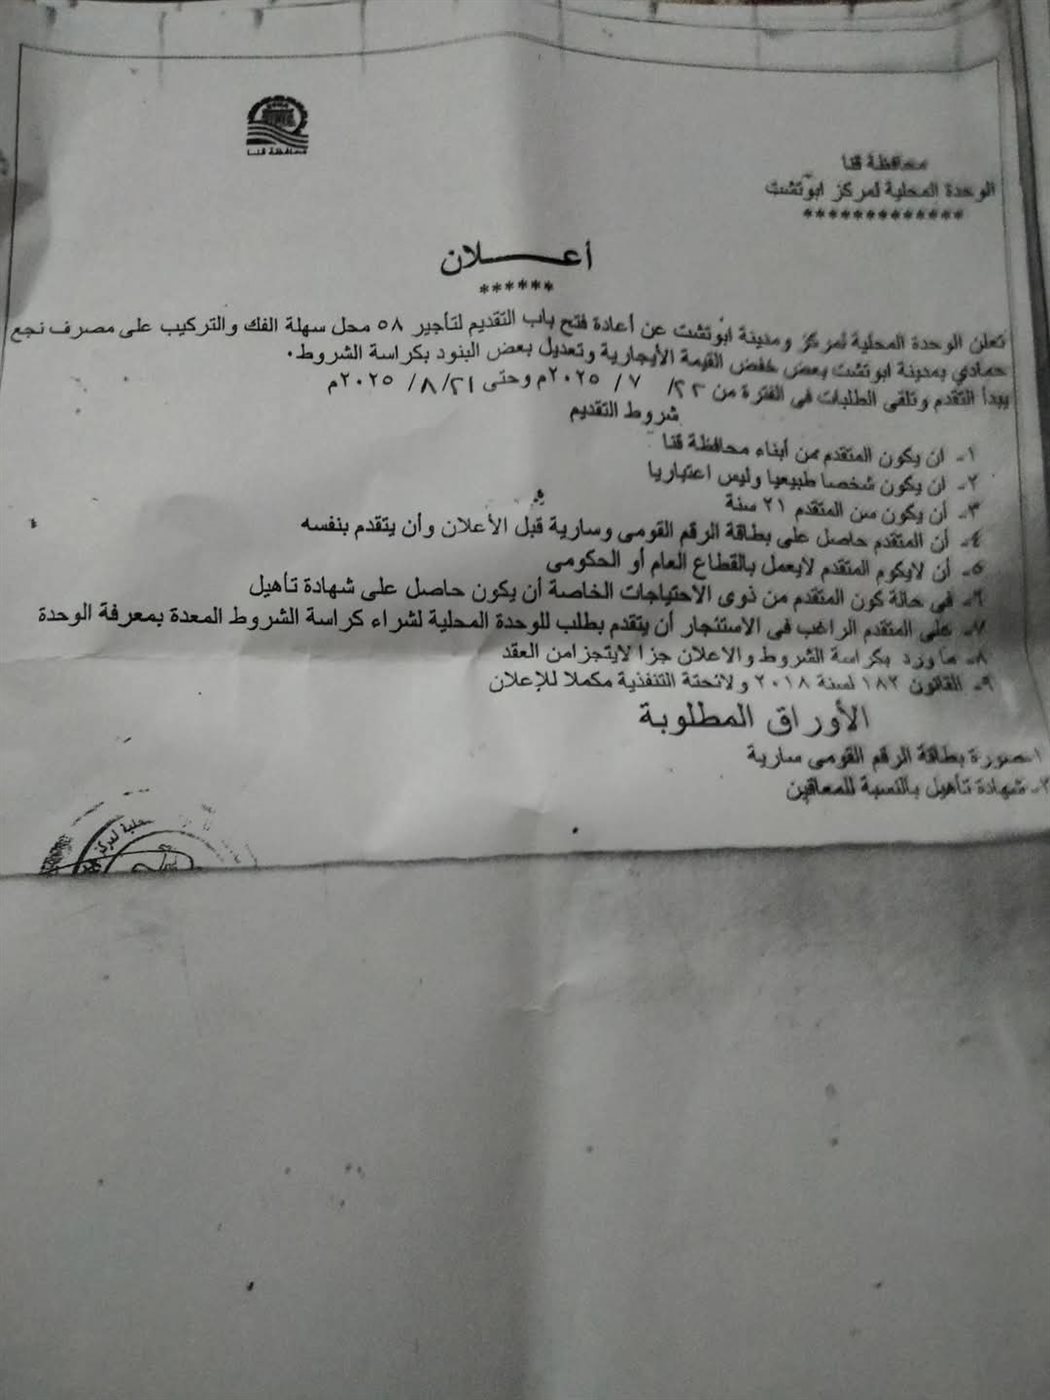 محافظة قنا
محافظة قنا
الوحدة المحلية لمركز ابوتشت
*************
أعـــــلان
******
تعلن الوحدة المحلية لمركز ومدينة ابوتشت عن أعادة فتح باب التقديم لتأجير ٥٨ محل سهلة الفك والتركيب على مصرف نجع
حمادي بمدينة ابوتشت بعض خفض القيمة الأيجارية وتعديل بعض البنود بكراسة الشروط.
يبدأ التقدم وتلقى الطلبات فى الفترة من ٢٣/ ٧ / ٢٠٢٥م وحتى ٢١/ ٨/ ٢٠٢٥م
شروط التقديم
١- ان يكون المتقدم من أبناء محافظة قنا
٢- ان يكون شخصا طبيعيا وليس اعتباريا
٣- أن يكون سن المتقدم ٢١ سنة
٤- أن المتقدم حاصل على بطاقة الرقم القومى وسارية قبل الأعلان وأن يتقدم بنفسه
٥- أن لايكوم المتقدم لايعمل بالقطاع العام أو الحكومى
٦- فى حالة كون المتقدم من ذوى الاحتياجات الخاصة أن يكون حاصل على شهادة تأهيل
٧- على المتقدم الراغب فى الاستئجار أن يتقدم بطلب للوحدة المحلية لشراء كراسة الشروط المعدة بمعرفة الوحدة
٨- ماورد بكراسة الشروط والاعلان جزا لايتجزامن العقد
٩- القانون ١٨٢ لسنة ٢٠١٨ ولائحتة التنفذية مكملا للإعلان
الأوراق المطلوبة
١-صورة بطاقة الرقم القومى سارية
٢- شهادة تأهيل بالنسبة للمعاقين